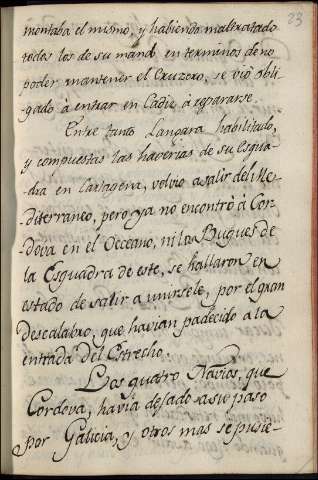 23
montaba el mismo, y habiendo maltratado
todos los de su mando en terminos de no
poder mantener el Cruzero, se vió obli-
gado à entrar en Cadiz à repararse.
Entre tanto Langara habilitado,
y compuestas las haverias de su Esqua-
dra en Cartagena, volvio a salir del Me-
diterraneo, pero ya no encontró à Cor-
dova en el Occeano, ni los Buques de
la Esquadra de este, se hallaron en
estado de salir a unirsele, por el gran
Descalabro, que havian padecido a la
entrada del Estrecho.
Los quatro Navios, que
Cordova, havia dejado a su paso
por Galicia, y otros mas se pusie-